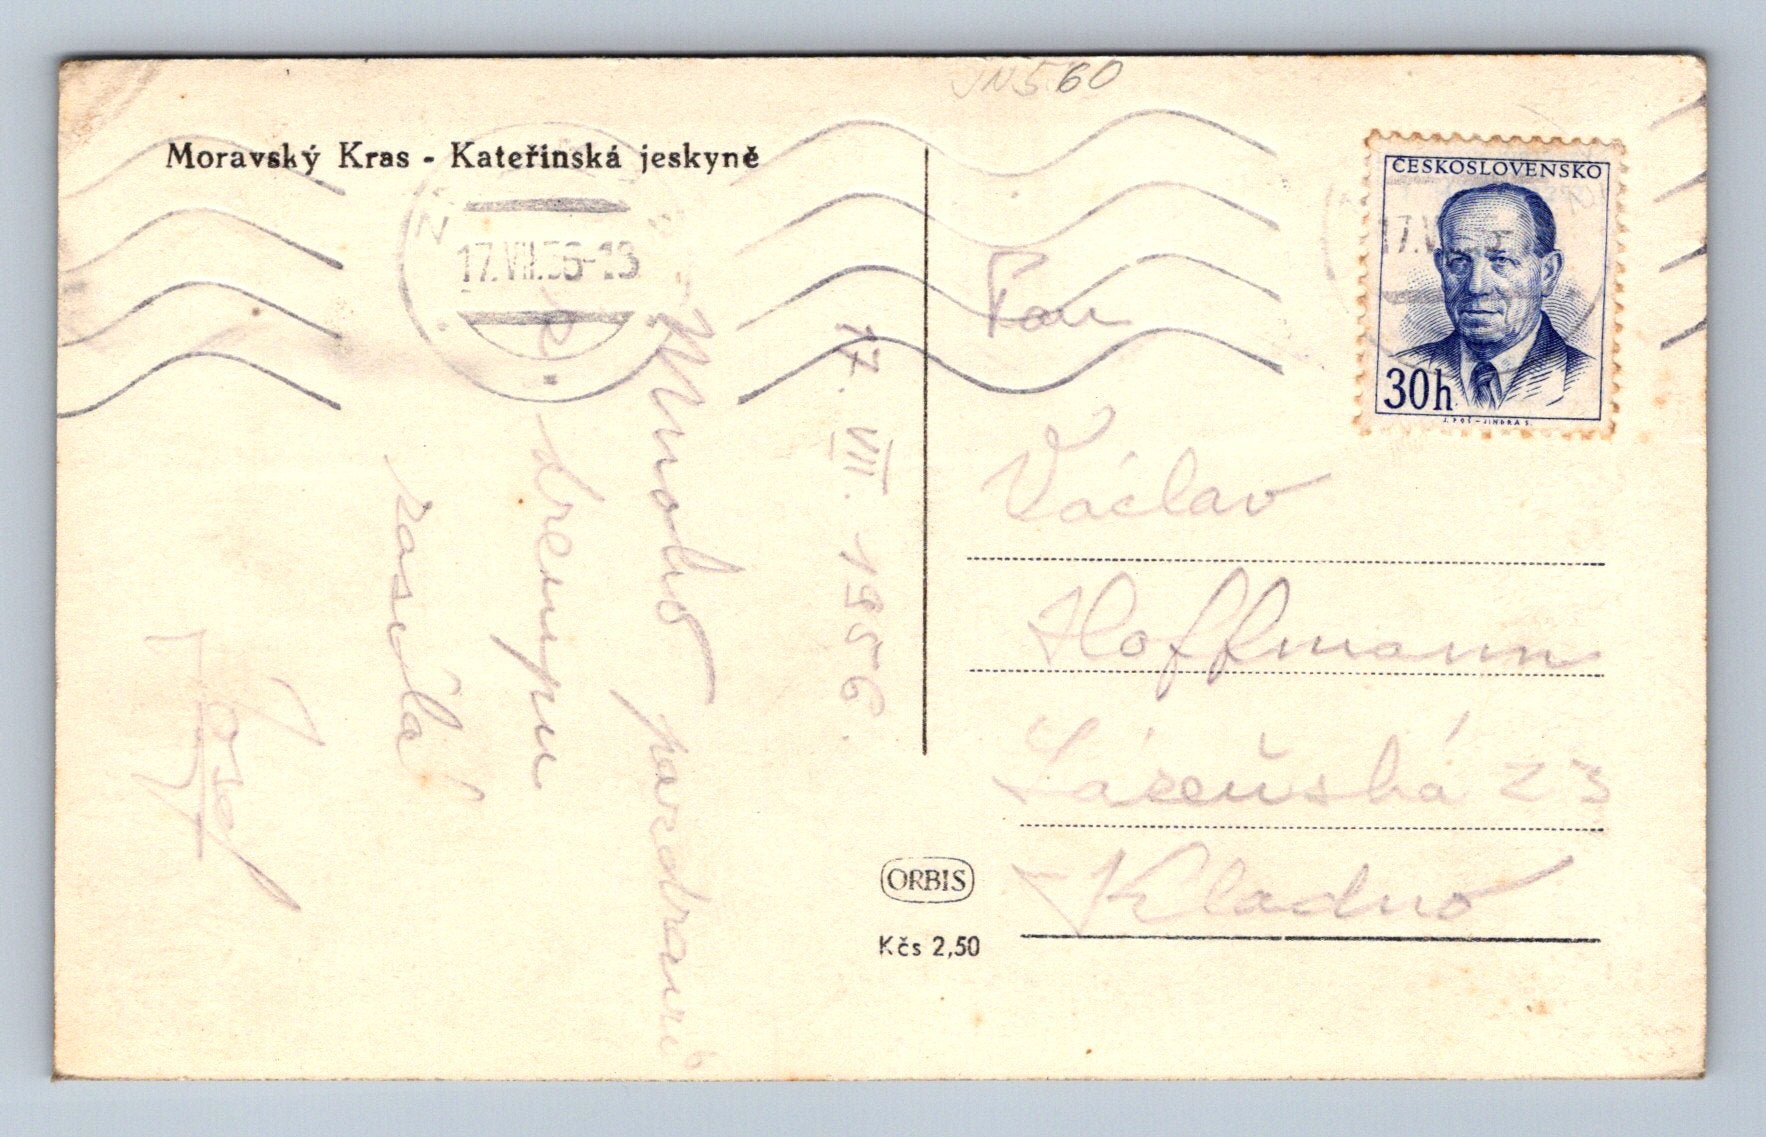 JN560
Moravský Kras - Kateřinská jeskyně
17.VII.56-13
17. VII. 1956.
Mnoho pozdravů
z trempu
zasílá
Josef
ČESKOSLOVENSKO
30h
J. POŠ - JINDRA S.
Pan
Václav
Hoffmann
Lázeňská 23
Kladno
ORBIS
Kčs 2,50